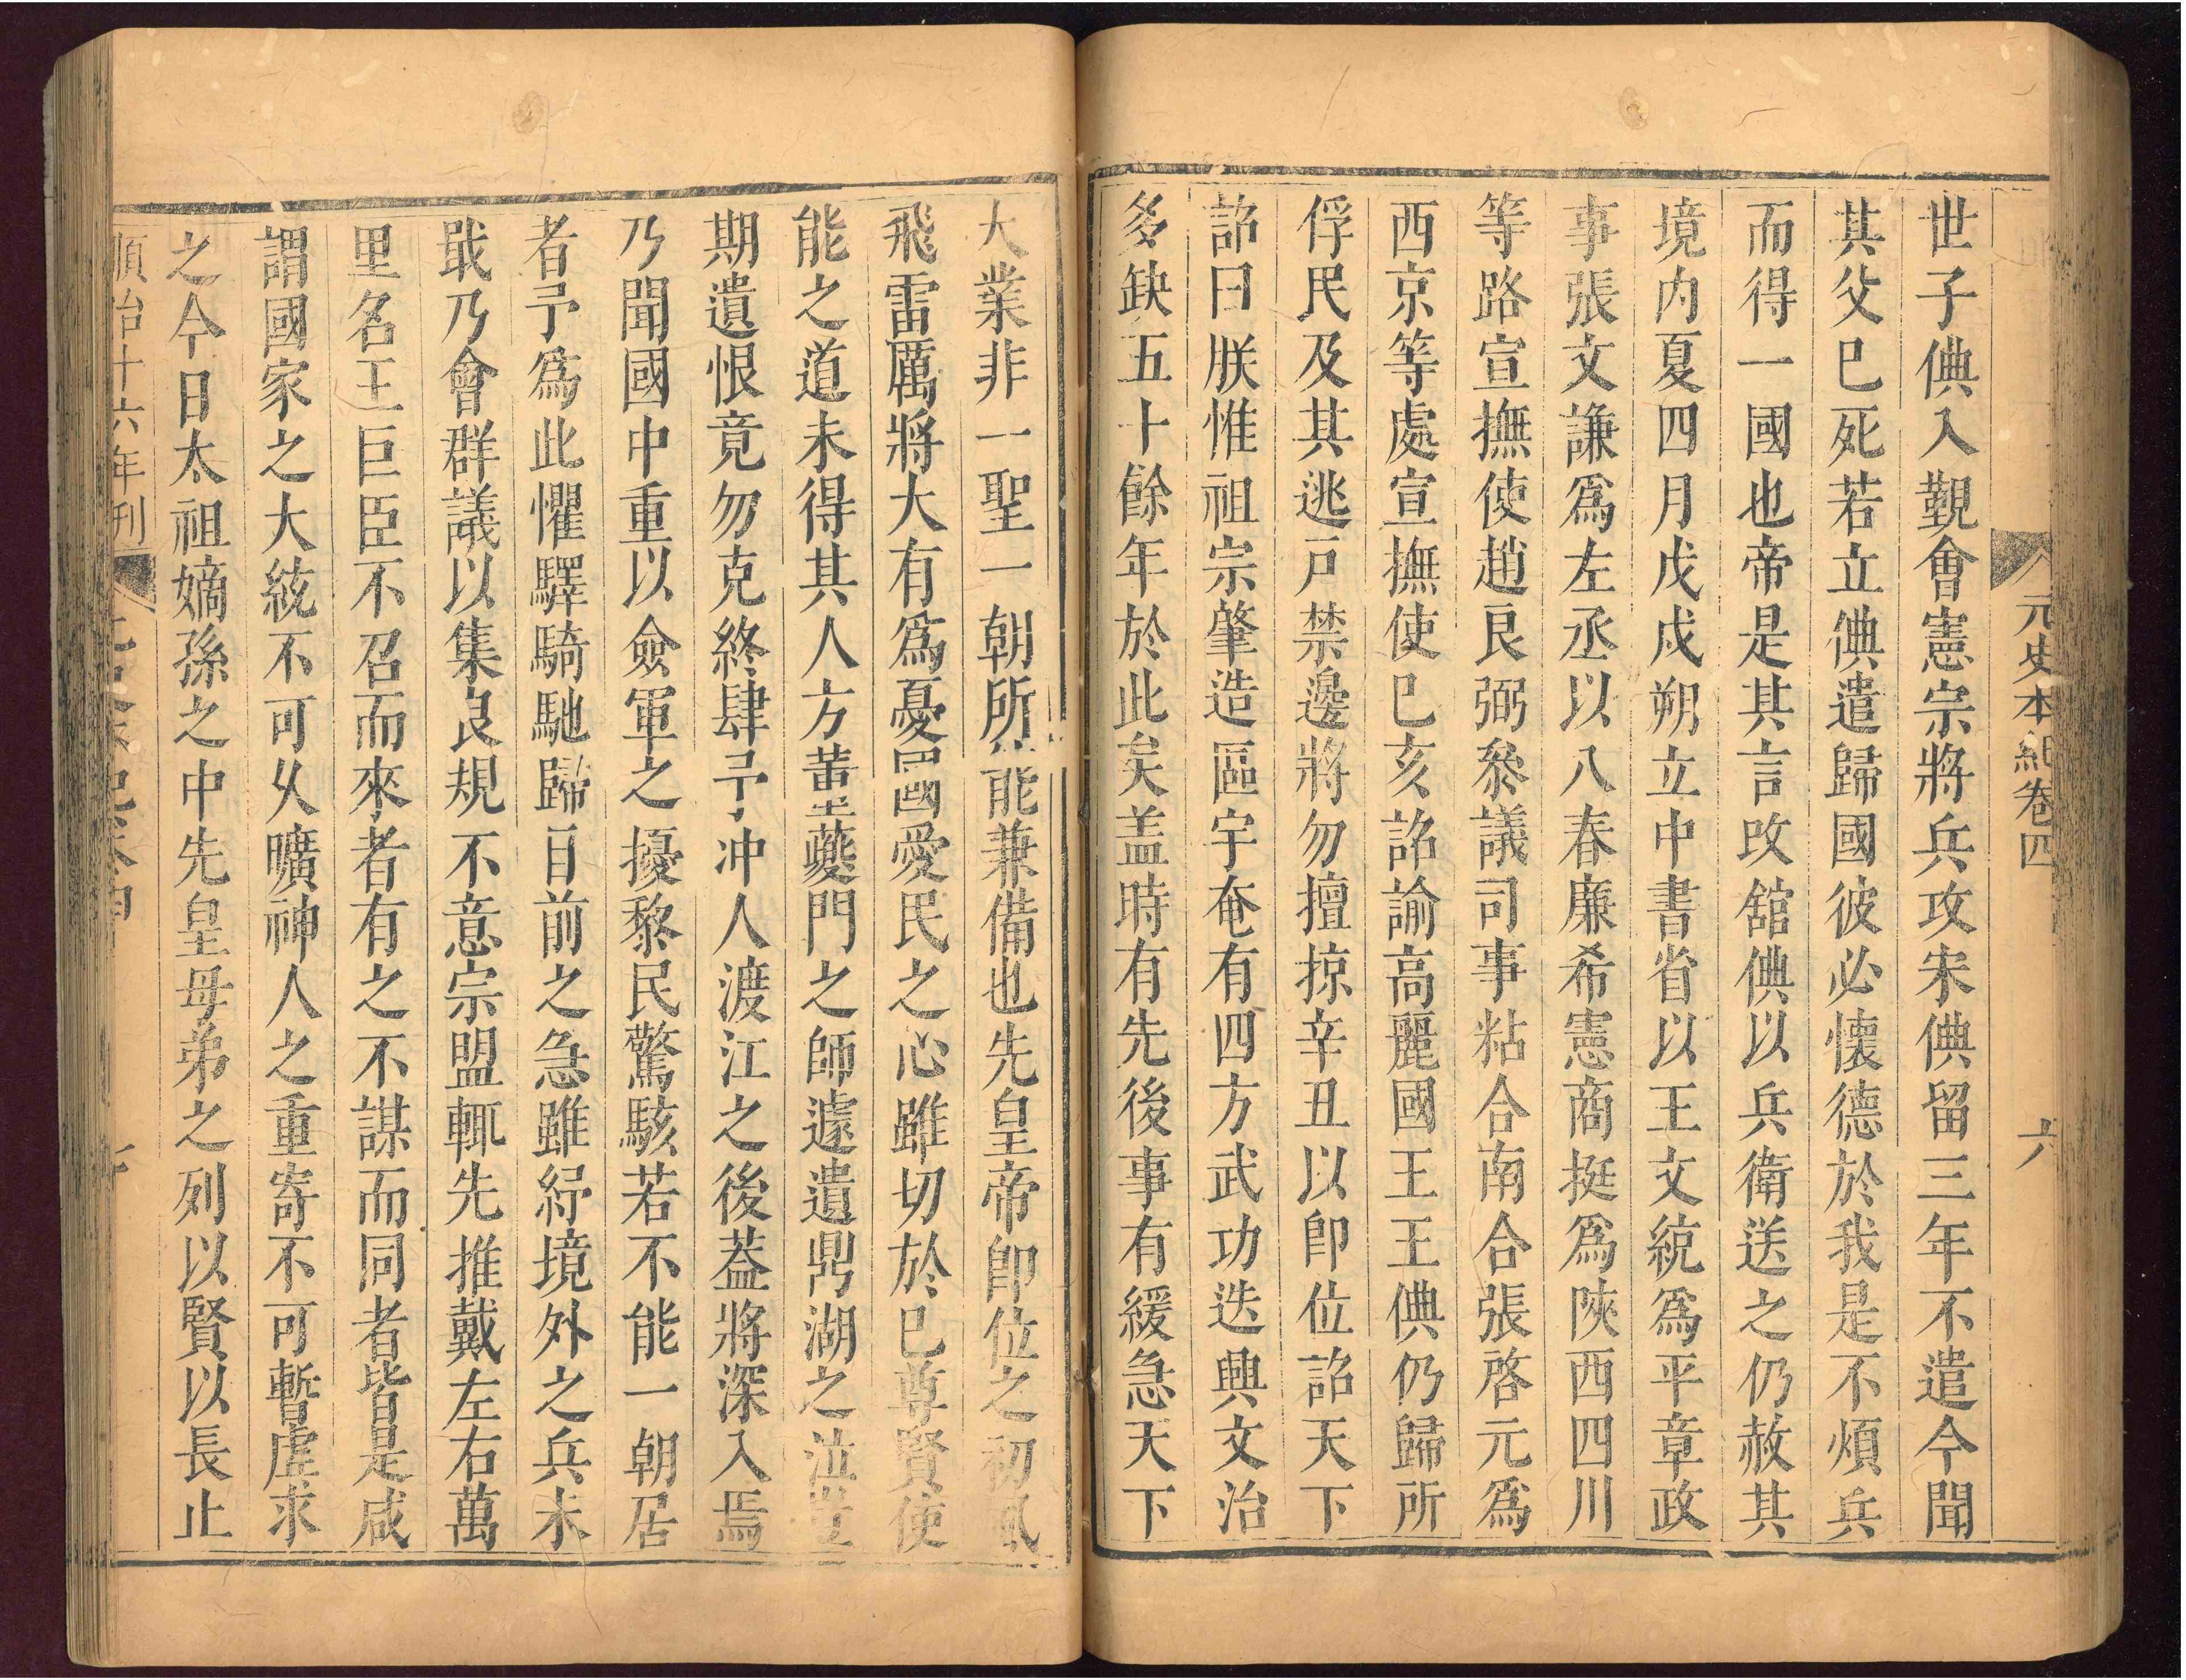 元史本紀卷四
六
世子倎入覲會憲宗將兵攻宋倎留三年不遣今聞
其父已死若立倎遣歸國彼必懷德於我是不煩兵
而得一國也帝是其言改舘倎以兵衛送之仍赦其
境内夏四月戊戌朔立中書省以王文統爲平章政
事張文謙爲左丞以八春廉希憲商挺爲陝西四川
等路宣撫使趙良弼叅議司事粘合南合張啓元爲
西京等處宣撫使己亥詔諭高麗國王王倎仍歸所
俘民及其逃戸禁邊將勿擅掠辛丑以即位詔天下
詔曰朕惟祖宗肇造區宇奄有四方武功迭興文治
多缺五十餘年於此矣盖時有先後事有緩急天下
大業非一聖一朝所能兼備也先皇帝卽位之初風
飛雷厲將大有爲憂國愛民之心雖切於已尊賢使
能之道未得其人方董夔門之師遽遺鼎湖之泣豈
期遺恨竟勿克終肆予冲人渡江之後葢將深入焉
乃聞國中重以僉軍之擾黎民驚駭若不能一朝居
者予爲此懼驛騎馳歸目前之急雖紓境外之兵未
戢乃會群議以集良規不意宗盟輒先推戴左右萬
里名王巨臣不召而來者有之不謀而同者皆是咸
謂國家之大統不可乆曠神人之重寄不可暫虛求
之今日太祖嫡孫之中先皇母弟之列以賢以長止
順治十六年刊